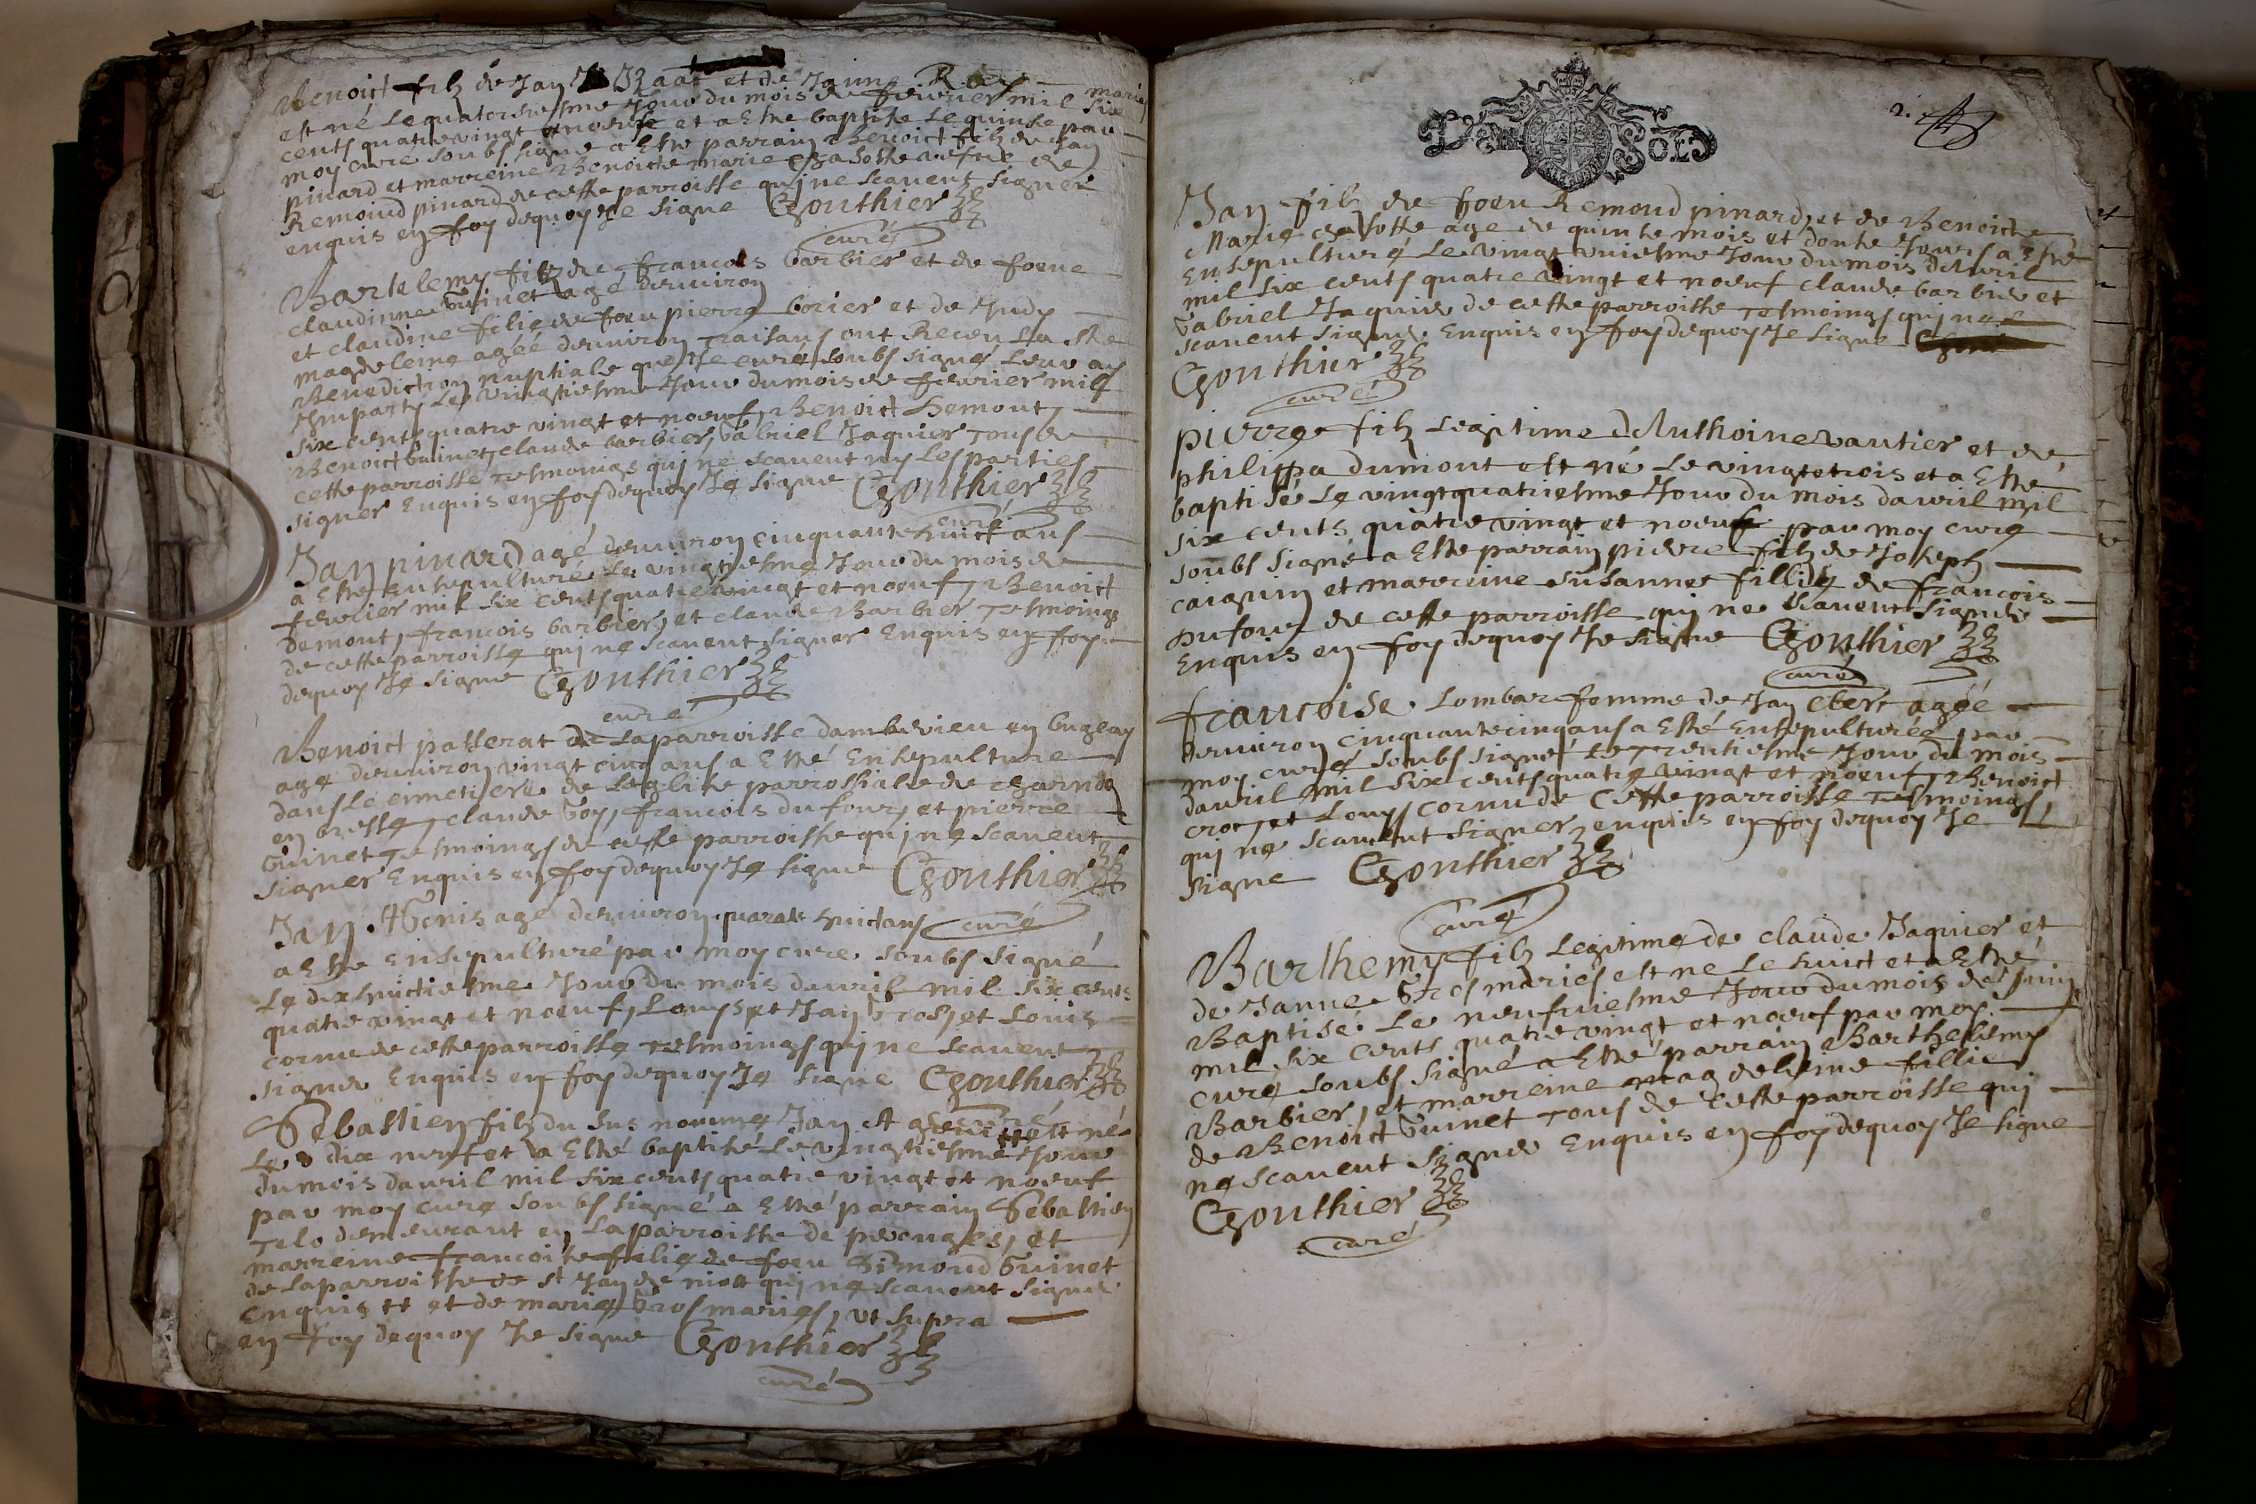 Benoict filz de Jan Izaac et de Janne Roy mariés
est né le quatorziesme Jour du mois de febvrier mil six
cents quatre vingt et noeuf et a Esté baptizé le quinze par
moy curé soubs signé a Esté parrain Benoict filz de Jan
pinard et marreine Benoicte Marie chasotte vefve de
Remond pinard de cette parroisse qui ne scavent signer
enquis en foy dequoy Je signe Gonthier
curé
Bartelemy filz de francois barbier et de foeue
claudinne Guinet agé denviron
et claudine fillie de foeu pierre borier et de Judy
magdeleine agéé denviron traisans ont Receu La Ste
Benediction nuptiale que Je curé soubs signé Leur ay
Imparty Le vingtiesme Jour du mois de febvrier mil
six cents quatre vingt et noeuf, Benoict Demont,
Benoict Guinet, claude barbier, Gabriel Jaquier tous de
cette parroisse tesmoings qui ne scavent ny Les parties
signer Enquis en foy dequoy Je signe Gonthier
curé
Jan pinard agé denviron cinquante huict ans
a Esté Ensepulturé Le vingtiesme Jour du mois de
febvrier mil six cents quatre vingt et noeuf, Benoict
Demont, francois barbier, et claude Barbier tesmoings
de cette parroisse qui ne scavent signer Enquis en foy
dequoy Je signe Gonthier
curé
Benoict passerat de La parroisse dambevieu en bugeay
agé denviron vingt cinq ans a Esté Ensepulturé
dans Le cimetiere de Leglise parrossialle de
en bresse, claude Goy, francois du four, et pierre
Guinet Tesmoings de cette parroisse qui ne scavent
signer Enquis en foy dequoy Je signe Gonthier
curé
Jan agé denviron quarate huict ans
a Esté Ensepulturé par moy curé soubs signé
Le dix huictiesme Jour du mois davril mil six cents
quatre vingt et noeuf, Louys et Jan Gros, et Louis
cornu de cette parroisse tesmoings qui ne scavent
signer Enquis en foy dequoy Je signe Gonthier
curé
Sebastien filz du sus nommé Jan est né
Le dix neuf et a Esté baptizé Le vingtiesme Jour
du mois davril mil six cents quatre vingt et noeuf
par moy curé soubs signé a Esté parrain Sebastien
Telo demeurant en La parroisse de perouges, et
marreine francoise fillie de foeu Simond Guinet
de La parroisse de St Jan de niost qui ne scavent signer
enquis tt et de marie Gros mariés, ut supra
en foy dequoy Je signe Gonthier
curé
Deux Sols
2.
Jan filz de foeu Remond pinard, et de Benoicte
Marie chasotte agé de quinze mois et douze Jours a Esté
Ensepulturé Le vingt uniesme Jour du mois davril
mil six cents quatre vingt et noeuf claude barbier et
Gabriel Jaquier de cette parroisse tesmoings qui ne
scavent signer Enquis en foy dequoy Je signe
Gonthier
curé
pierre filz Legitime dAnthoine vautier et de
philippa dumont est né Le vingt et trois et a Esté
baptisé Le vingt quatriesme Jour du mois davril mil
six cents quatre vingt et noeuf par moy curé
soubs signé a Esté parrain pierre filz de Joseph
carquin et marreine susanne fillie de francois
Dufour de cette parroisse qui ne scavent signer
Enquis en foy dequoy Je signe Gonthier
curé
francoise Lombar femme de Jan Clerc agéé
denviron cinquante cinq ans a Esté Ensepulturéé par
moy curé soubs signé Le trentiesme Jour du mois
davril mil six cents quatre vingt et noeuf, Benoict
croc, et Louys cornu de cette parroisse tesmoings,
qui ne scavent signer enquis en foy dequoy Je
signe Gonthier
curé
Barthemy filz Legitime de claude Jaquier et
de Janne Gros mariés est né Le huict et a Esté
Baptisé Le neufviesme Jour du mois de Juin
mil six cents quatre vingt et noeuf par moy
curé soubs signé a Esté parrain Barthelemy
Barbier, et marreine magdeleine fillie
de Benoict Guinet tous de cette parroisse qui
ne scavent signer Enquis en foy dequoy Je signe
Gonthier
curé